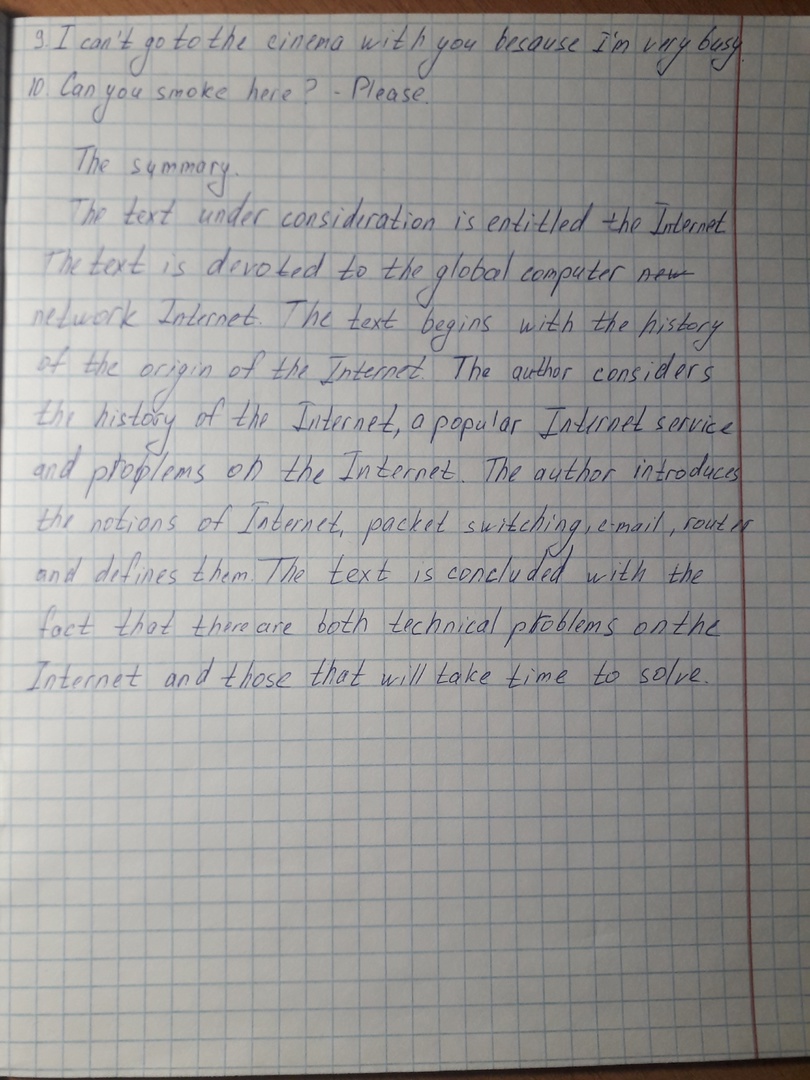 9. I can't go to the cinema with you besause I'm very busy.
10. Can you smoke here? - Please.
The summary.
The text under consideration is entitled the Internet
The text is devoted to the global computer new
network Internet. The text begins with the history
of the origin of the Internet. The author considers
the history of the Internet, a popular Internet service
and problems on the Internet. The author introduces
the notions of Internet, packet switching, e-mail, router
and defines them. The text is concluded with the
fact that there are both technical problems on the
Internet and those that will take time to solve.